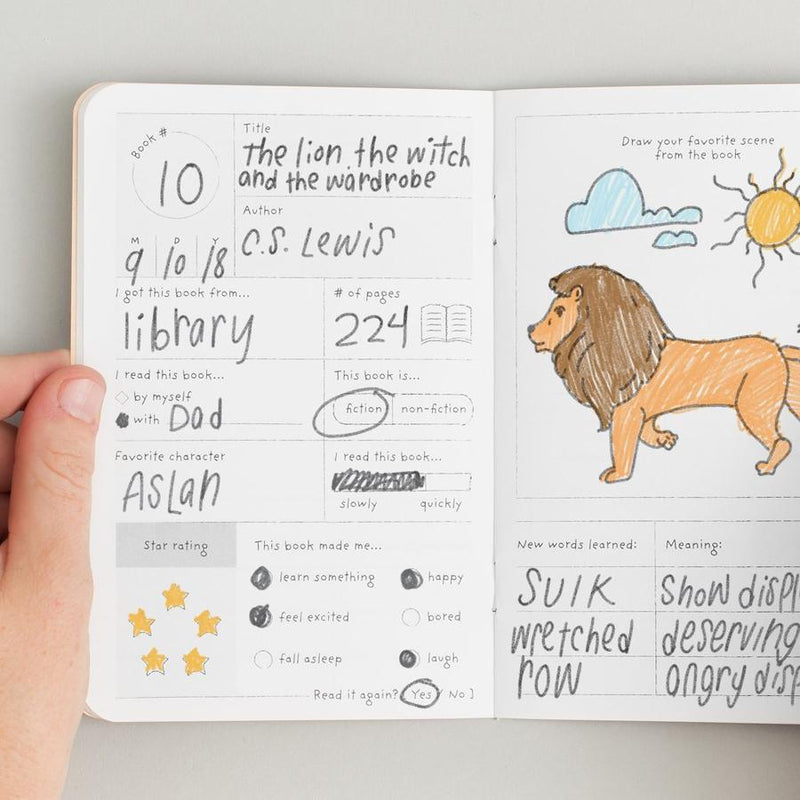 Book #
10
Title
the lion the witch
and the wardrobe
Author
C.S. Lewis
M D Y
9 10 18
I got this book from...
library
# of pages
224
I read this book...
by myself
with Dad
This book is...
fiction non-fiction
Favorite character
Aslan
I read this book...
slowly quickly
Star rating
This book made me...
learn something happy
feel excited bored
fall asleep laugh
Read it again? Yes / No
Draw your favorite scene
from the book
New words learned: Meaning:
Sulk Show
wretched deserving
row angry